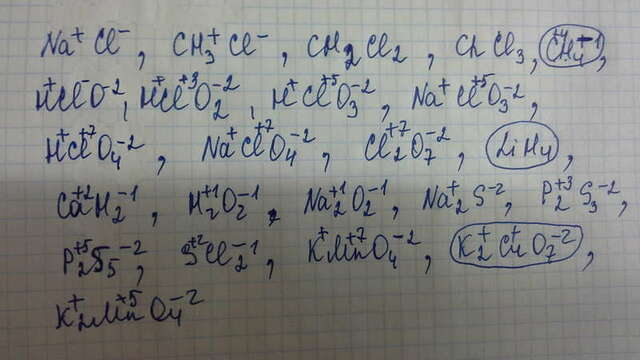 Na⁺Cl⁻, CH₃⁺Cl⁻, CH₂Cl₂, ChCl₃, CH₄⁺¹,
H⁺Cl⁻O⁻², H⁺Cl⁺³O₂⁻², H⁺Cl⁺⁵O₃⁻², Na⁺Cl⁺⁵O₃⁻²,
H⁺Cl⁺⁷O₄⁻², Na⁺Cl⁺⁷O₄⁻², Cl₂⁺⁷O₇⁻², LiH₄,
Ca⁺²H₂⁻¹, H₂⁺¹O₂⁻¹, Na₂⁺¹O₂⁻¹, Na₂⁺S⁻², P₂⁺³S₃⁻²,
P₂⁺⁵S₅⁻², S⁺²Cl₂⁻¹, K⁺Mn⁺⁷O₄⁻², K₂⁺Cu⁺O₇⁻²,
K₂⁺Mn⁺⁵O₄⁻²